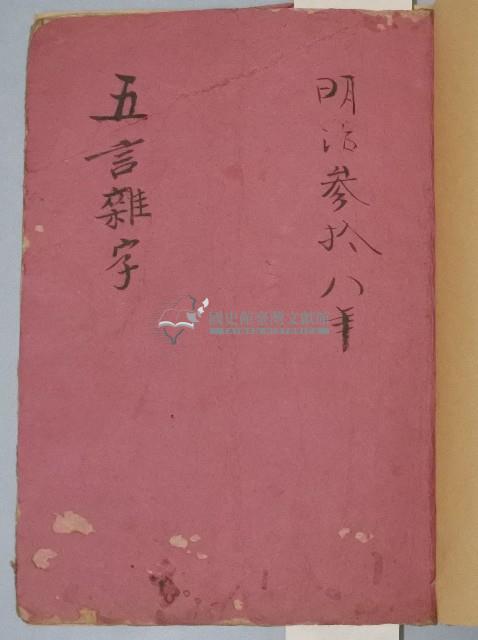 明治參拾八年
五言雜字
國史館臺灣文獻館
TAIWAN HISTORICA